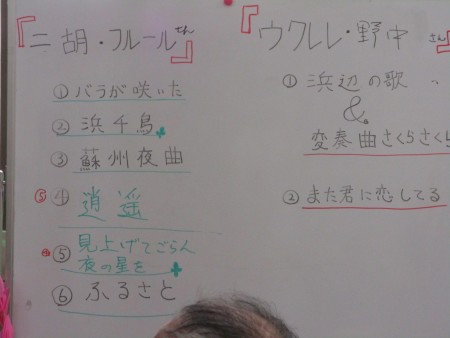 『二胡・フルールさん』
①バラが咲いた
②浜千鳥
③蘇州夜曲
⑤④逍遥
④⑤見上げてごらん
夜の星を
⑥ふるさと
『ウクレレ・野中さん』
①浜辺の歌、
&
変奏曲さくらさくら
②また君に恋してる